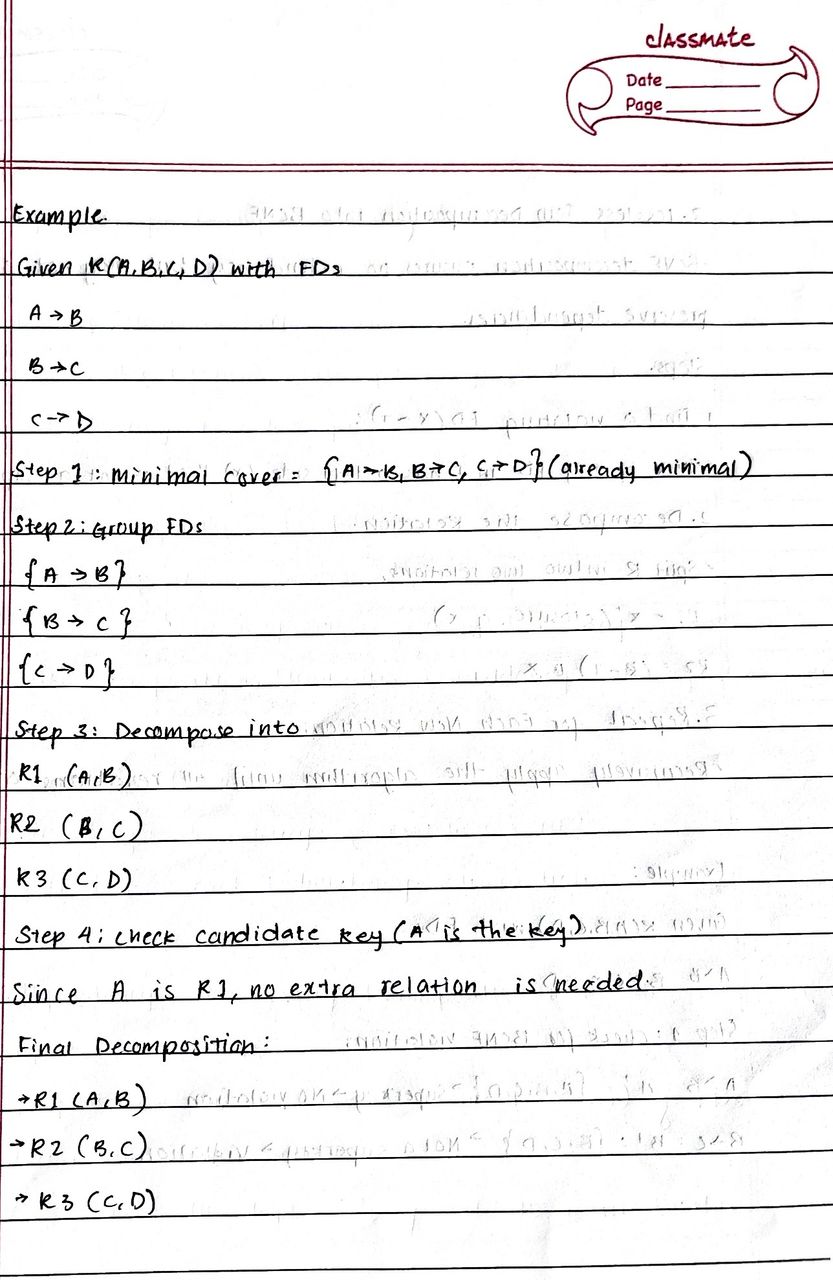 classmate
Date
Page
Example.
Given R(A,B,C, D) with FDs
A → B
B → C
C → D
Step 1: Minimal cover = {A → B, B → C, C → D} (already minimal)
Step 2: Group FDs
{A → B}
{B → C}
{C → D}
Step 3: Decompose into
R1 (A,B)
R2 (B, C)
R3 (C, D)
Step 4: Check candidate key (A is the key)
Since A is R1, no extra relation is needed.
Final Decomposition:
→ R1 (A,B)
→ R2 (B,C)
→ R3 (C,D)